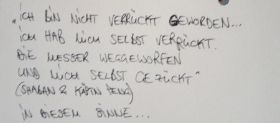 „ICH BIN NICHT VERRÜCKT GEWORDEN...
ICH HAB MICH SELBST VERRÜCKT.
DIE MESSER WEGGEWORFEN
UND MICH SELBST GEZÜCKT“
(SHABAN & KÄPTN PENG)
IN DIESEM SINNE...